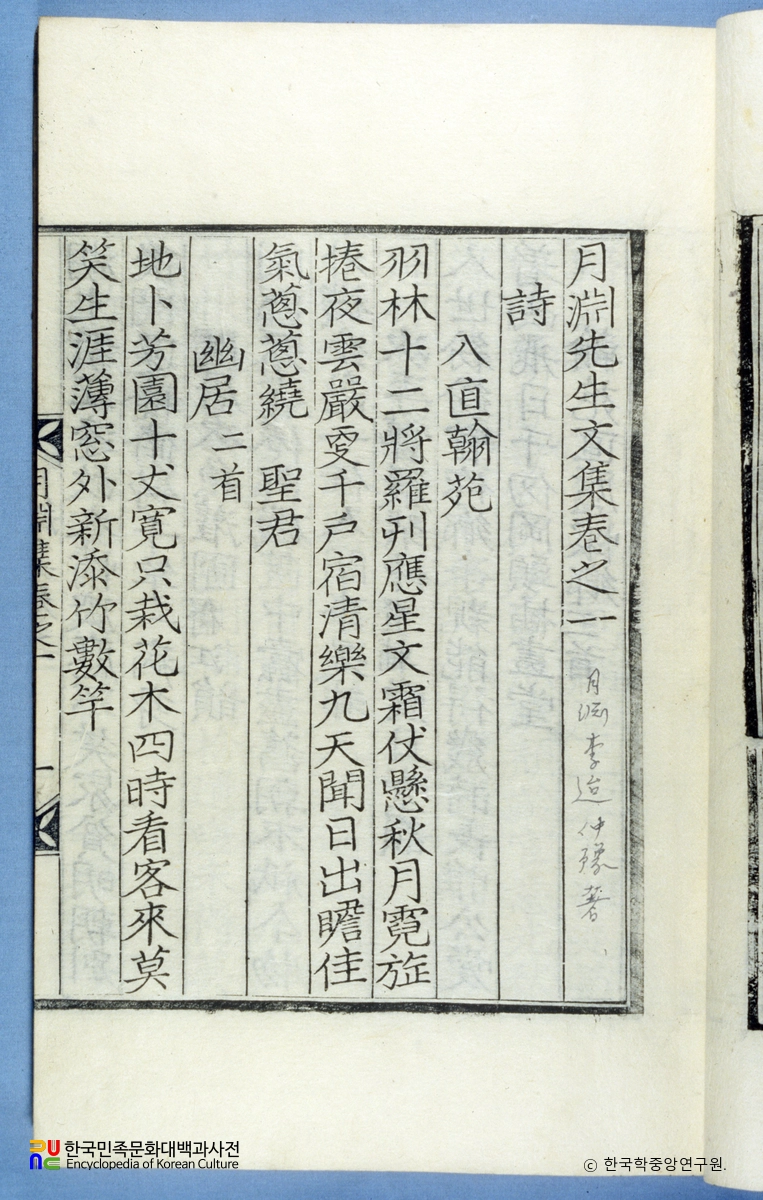 月淵先生文集卷之一
月淵 李迨 仲豫 著
詩
入直翰苑
羽林十二將羅列應星文霜仗懸秋月霓旌
捲夜雲嚴更千戶宿清樂九天聞日出瞻佳
氣蔥蔥繞 聖君
幽居 二首
地卜芳園十丈寬只栽花木四時看客來莫
笑生涯薄窓外新添竹數竿
月淵集卷之一
一
한국민족문화대백과사전
Encyclopedia of Korean Culture
ⓒ 한국학중앙연구원.